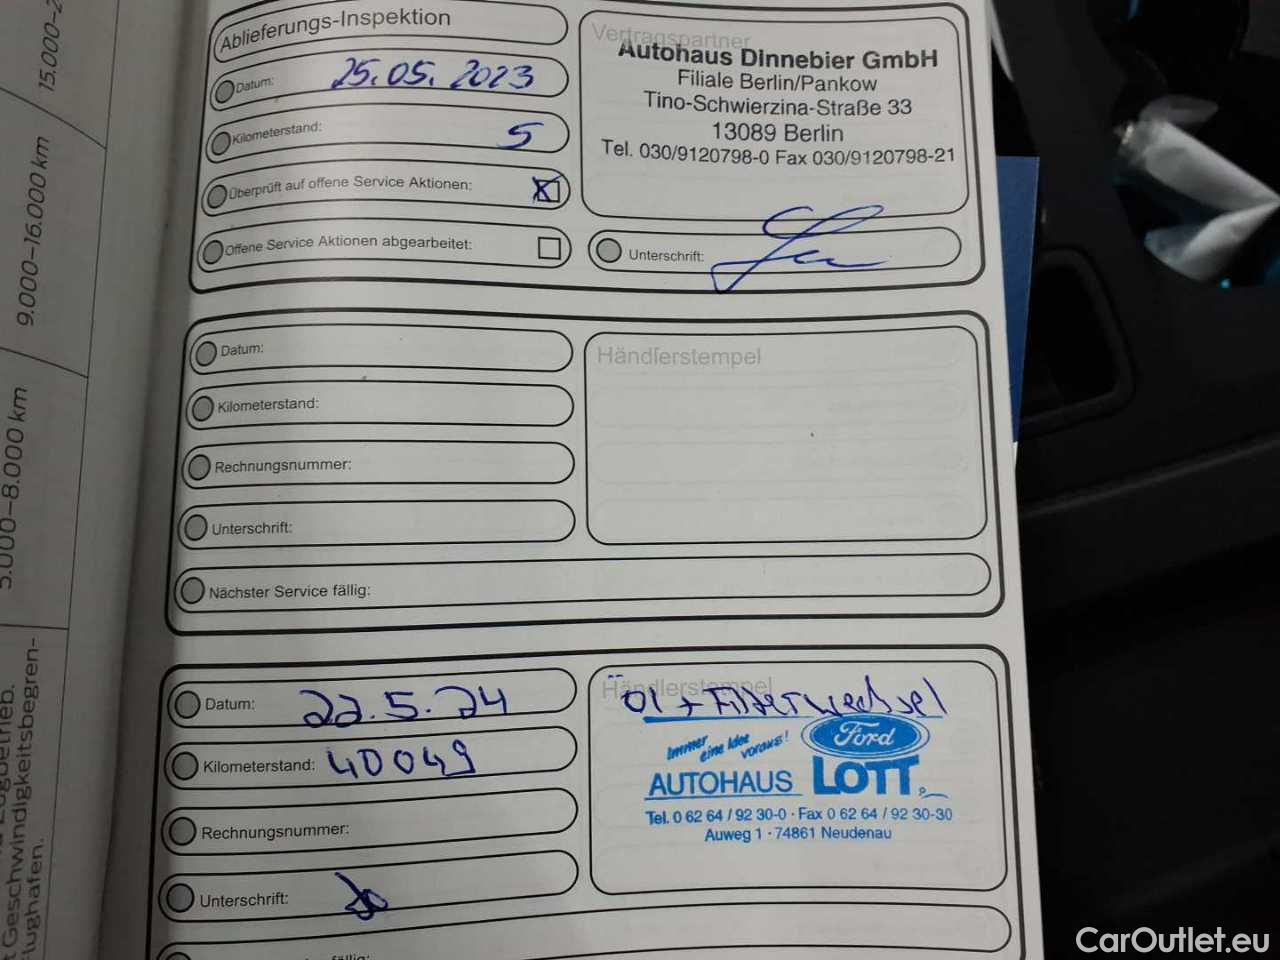 Ablieferungs-Inspektion
Datum: 25.05.2023
Kilometerstand: 5
Überprüft auf offene Service Aktionen:
Offene Service Aktionen abgearbeitet:
Vertragspartner
Autohaus Dinnebier GmbH
Filiale Berlin/Pankow
Tino-Schwierzina-Straße 33
13089 Berlin
Tel. 030/9120798-0 Fax 030/9120798-21
Unterschrift:
Datum:
Kilometerstand:
Rechnungsnummer:
Unterschrift:
Nächster Service fällig:
Händlerstempel
Datum: 22.5.24
Kilometerstand: 40049
Rechnungsnummer:
Unterschrift:
fällig:
Händlerstempel
Öl + Filterwechsel
Immer
eine Idee
voraus!
Ford
AUTOHAUS LOTT
Tel. 0 62 64 / 92 30-0 · Fax 0 62 64 / 92 30-30
Auweg 1 · 74861 Neudenau
9.000–16.000 km
5.000–8.000 km
Geschwindigkeitsbegren-
CarOutlet.eu